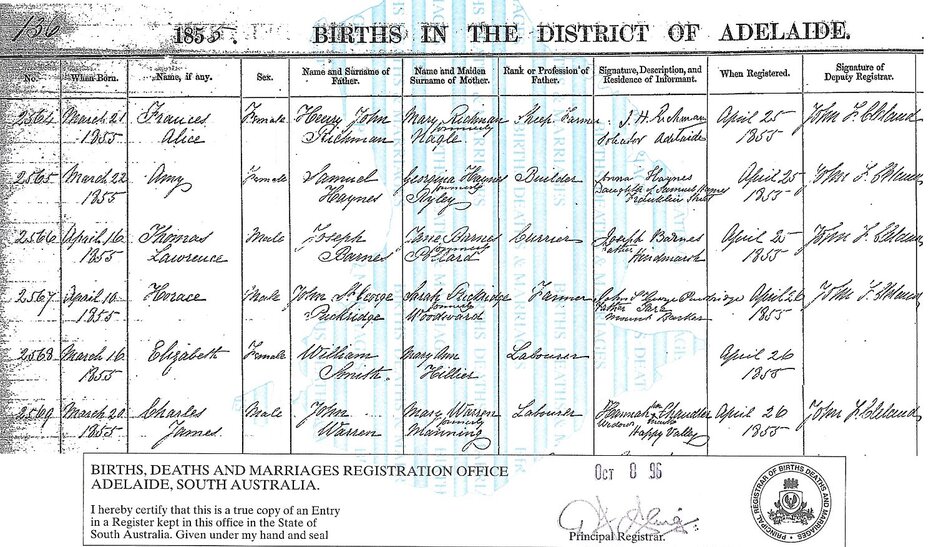 136
1855. BIRTHS IN THE DISTRICT OF ADELAIDE.
No. When Born. Name, if any. Sex. Name and Surname of Father. Name and Maiden Surname of Mother. Rank or Profession of Father. Signature, Description, and Residence of Informant. When Registered. Signature of Deputy Registrar.
2564 March 21 Frances Female Henry John Mary Richman Farmer J. H. Richman April 25 John F. Cleland
1855 Alice Richman formerly Nagle Solicitor Adelaide 1855
2565 March 22 Amy Female Samuel Georgina Haynes Builder Anna Haynes April 25 John F. Cleland
1855 Haynes formerly Ryley Daughter of Samuel Haynes Franklin Street 1855
2566 April 16 Thomas Male Joseph Jane Barnes Currier Joseph Barnes April 25 John F. Cleland
1855 Lawrence Barnes formerly Pollard Father Hindmarsh 1855
2567 April 10 Horace Male John St George Sarah Puckridge Farmer John St George Puckridge April 26 John F. Cleland
1855 Puckridge formerly Woodward Father Mount Barker 1855
2568 March 16 Elizabeth Female William Mary Ann Labourer April 26
1855 Smith. Hillier 1855
2569 March 20 Charles Male John Mary Warren Labourer Hannah Chandler April 26 John F. Cleland
1855 James Warren formerly Manning mark Happy Valley 1855
BIRTHS, DEATHS AND MARRIAGES REGISTRATION OFFICE
ADELAIDE, SOUTH AUSTRALIA.
OCT 8 96
I hereby certify that this is a true copy of an Entry
in a Register kept in this office in the State of
South Australia. Given under my hand and seal
Principal Registrar.
PRINCIPAL REGISTRAR OF BIRTHS DEATHS AND MARRIAGES